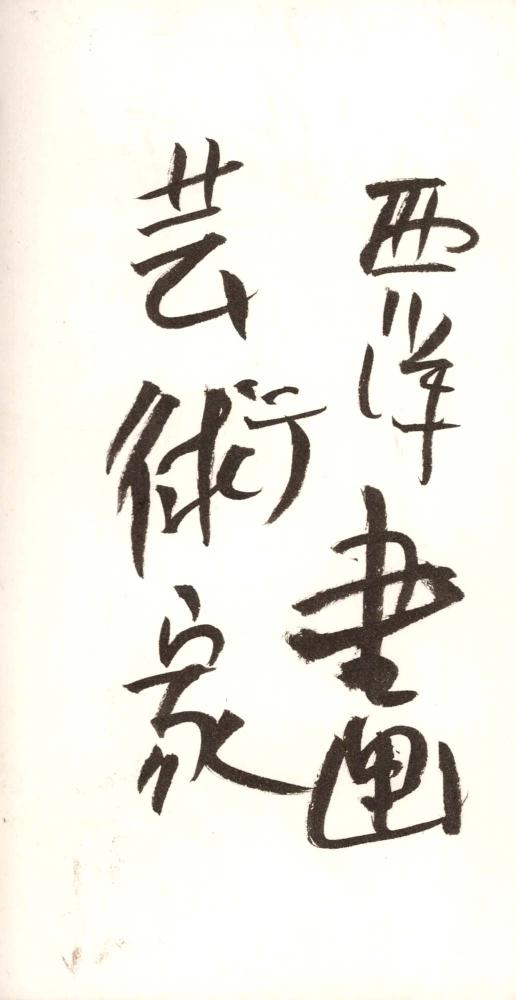 西洋書画
芸術家